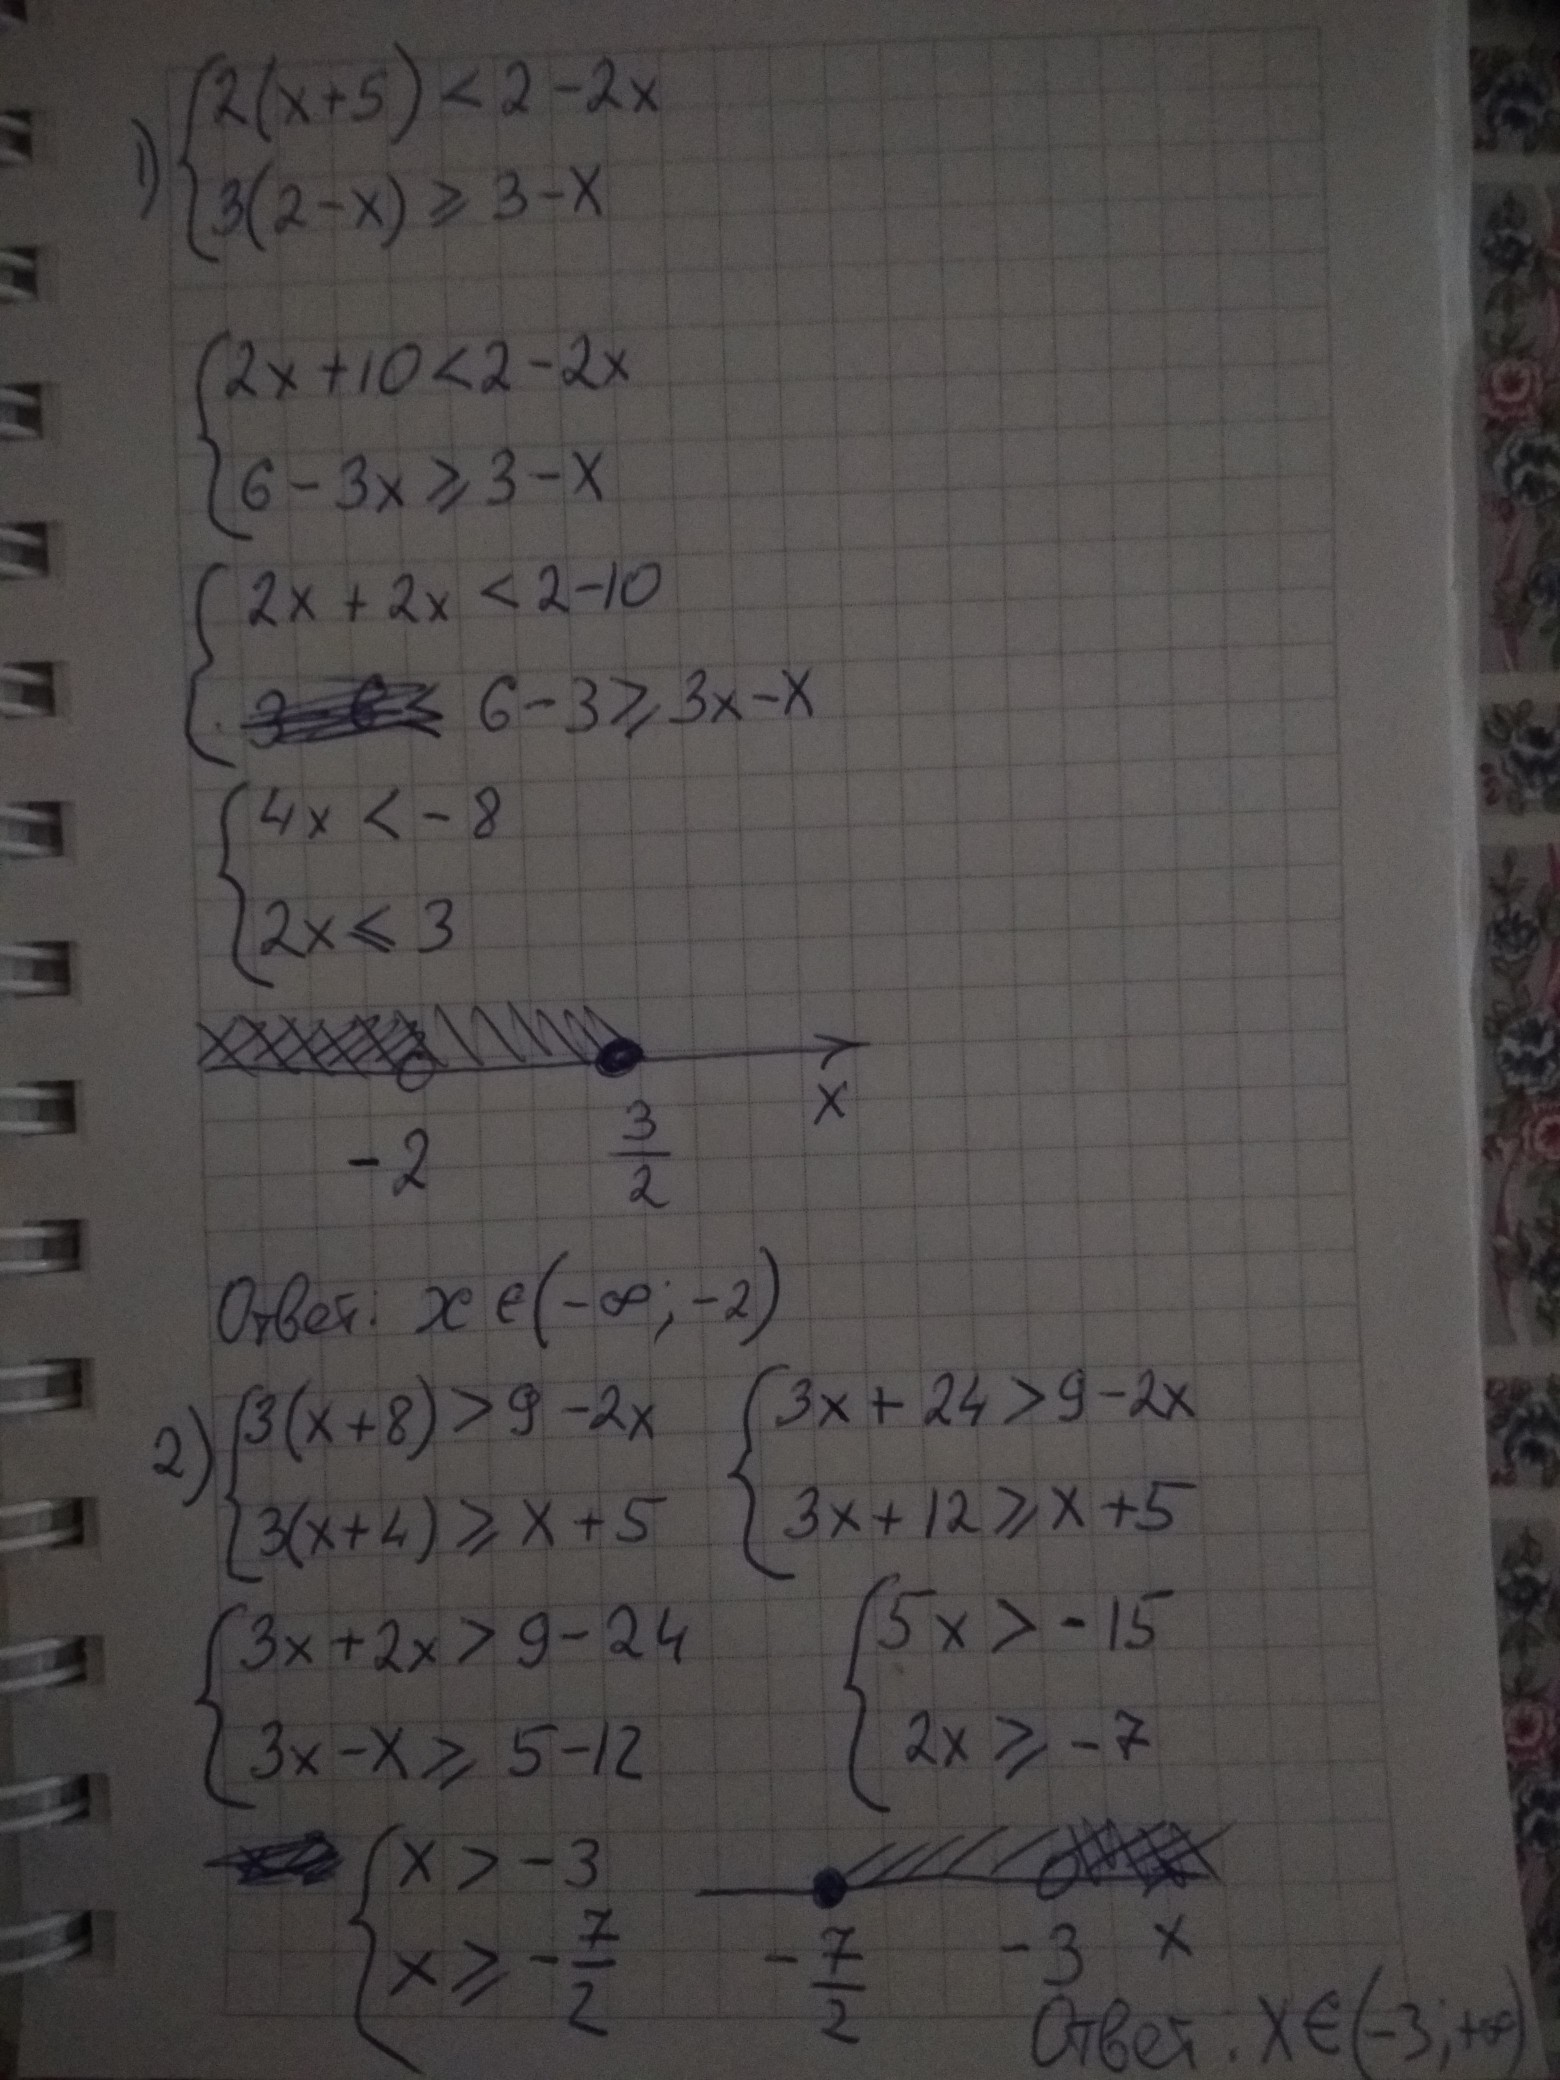 1) {2(x+5) < 2-2x
3(2-x) ≥ 3-x
{2x+10<2-2x
6-3x ≥ 3-x
{2x+2x < 2-10
6-3 ≥ 3x-x
{4x < -8
2x ≤ 3
x
-2 3/2
Ответ: x ∈ (-∞; -2)
2) {3(x+8) > 9-2x {3x+24>9-2x
3(x+4) ≥ x+5 3x+12 ≥ x+5
{3x+2x > 9-24 {5x > -15
3x-x ≥ 5-12 2x ≥ -7
{x > -3
x ≥ -7/2 -7/2 -3 x
Ответ: x ∈ (-3; +∞)